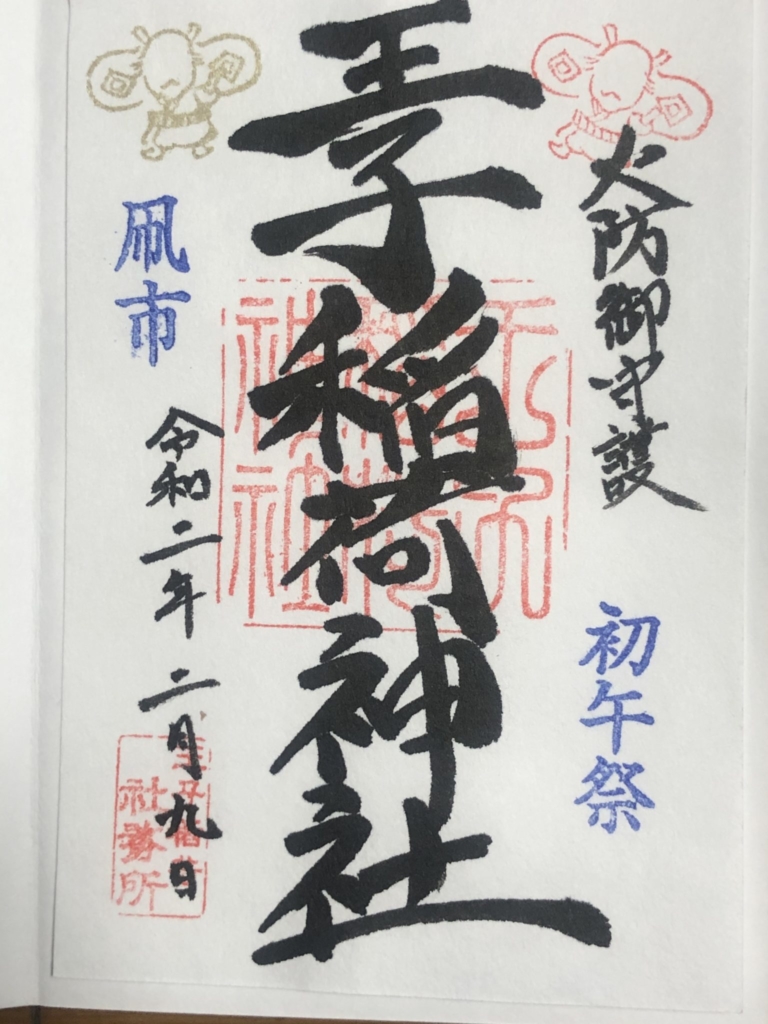 火防御守護
初午祭
王子稲荷神社
王子稲荷神社
凧市
令和二年二月九日
王子稲荷
社務所